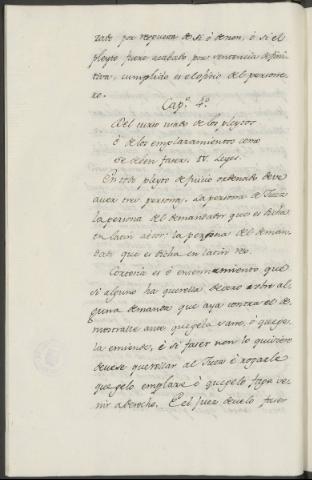 rado por respuesta de si ó de non, ó si el
pleyto fuere acabado por sentencia defini-
tiva, cumplido es el oficio del persone-
ro.
Cap.º 4.º
Del curso usado de los pleytos
é de los emplazamientos como
se deven faser. IV. Leyes.
En todo pleyto de juicio ordenado deve
aver tres personas. La persona del Juez
la persona del demandador que es dicha
en latin actor: la persona del deman-
dado que es dicha en latin reo.
Cortesia es é enseñamiento que
si alguno ha querella de otro sobre al-
guna demanda que aya contra el de-
mostralle ante quegela sane, ó quege-
la emiende, é si faser non lo quisiere
devese querellar al Juez é rogarle
quegelo emplaze é quegelo faga ve-
nir a derecho. E el juez develo faser